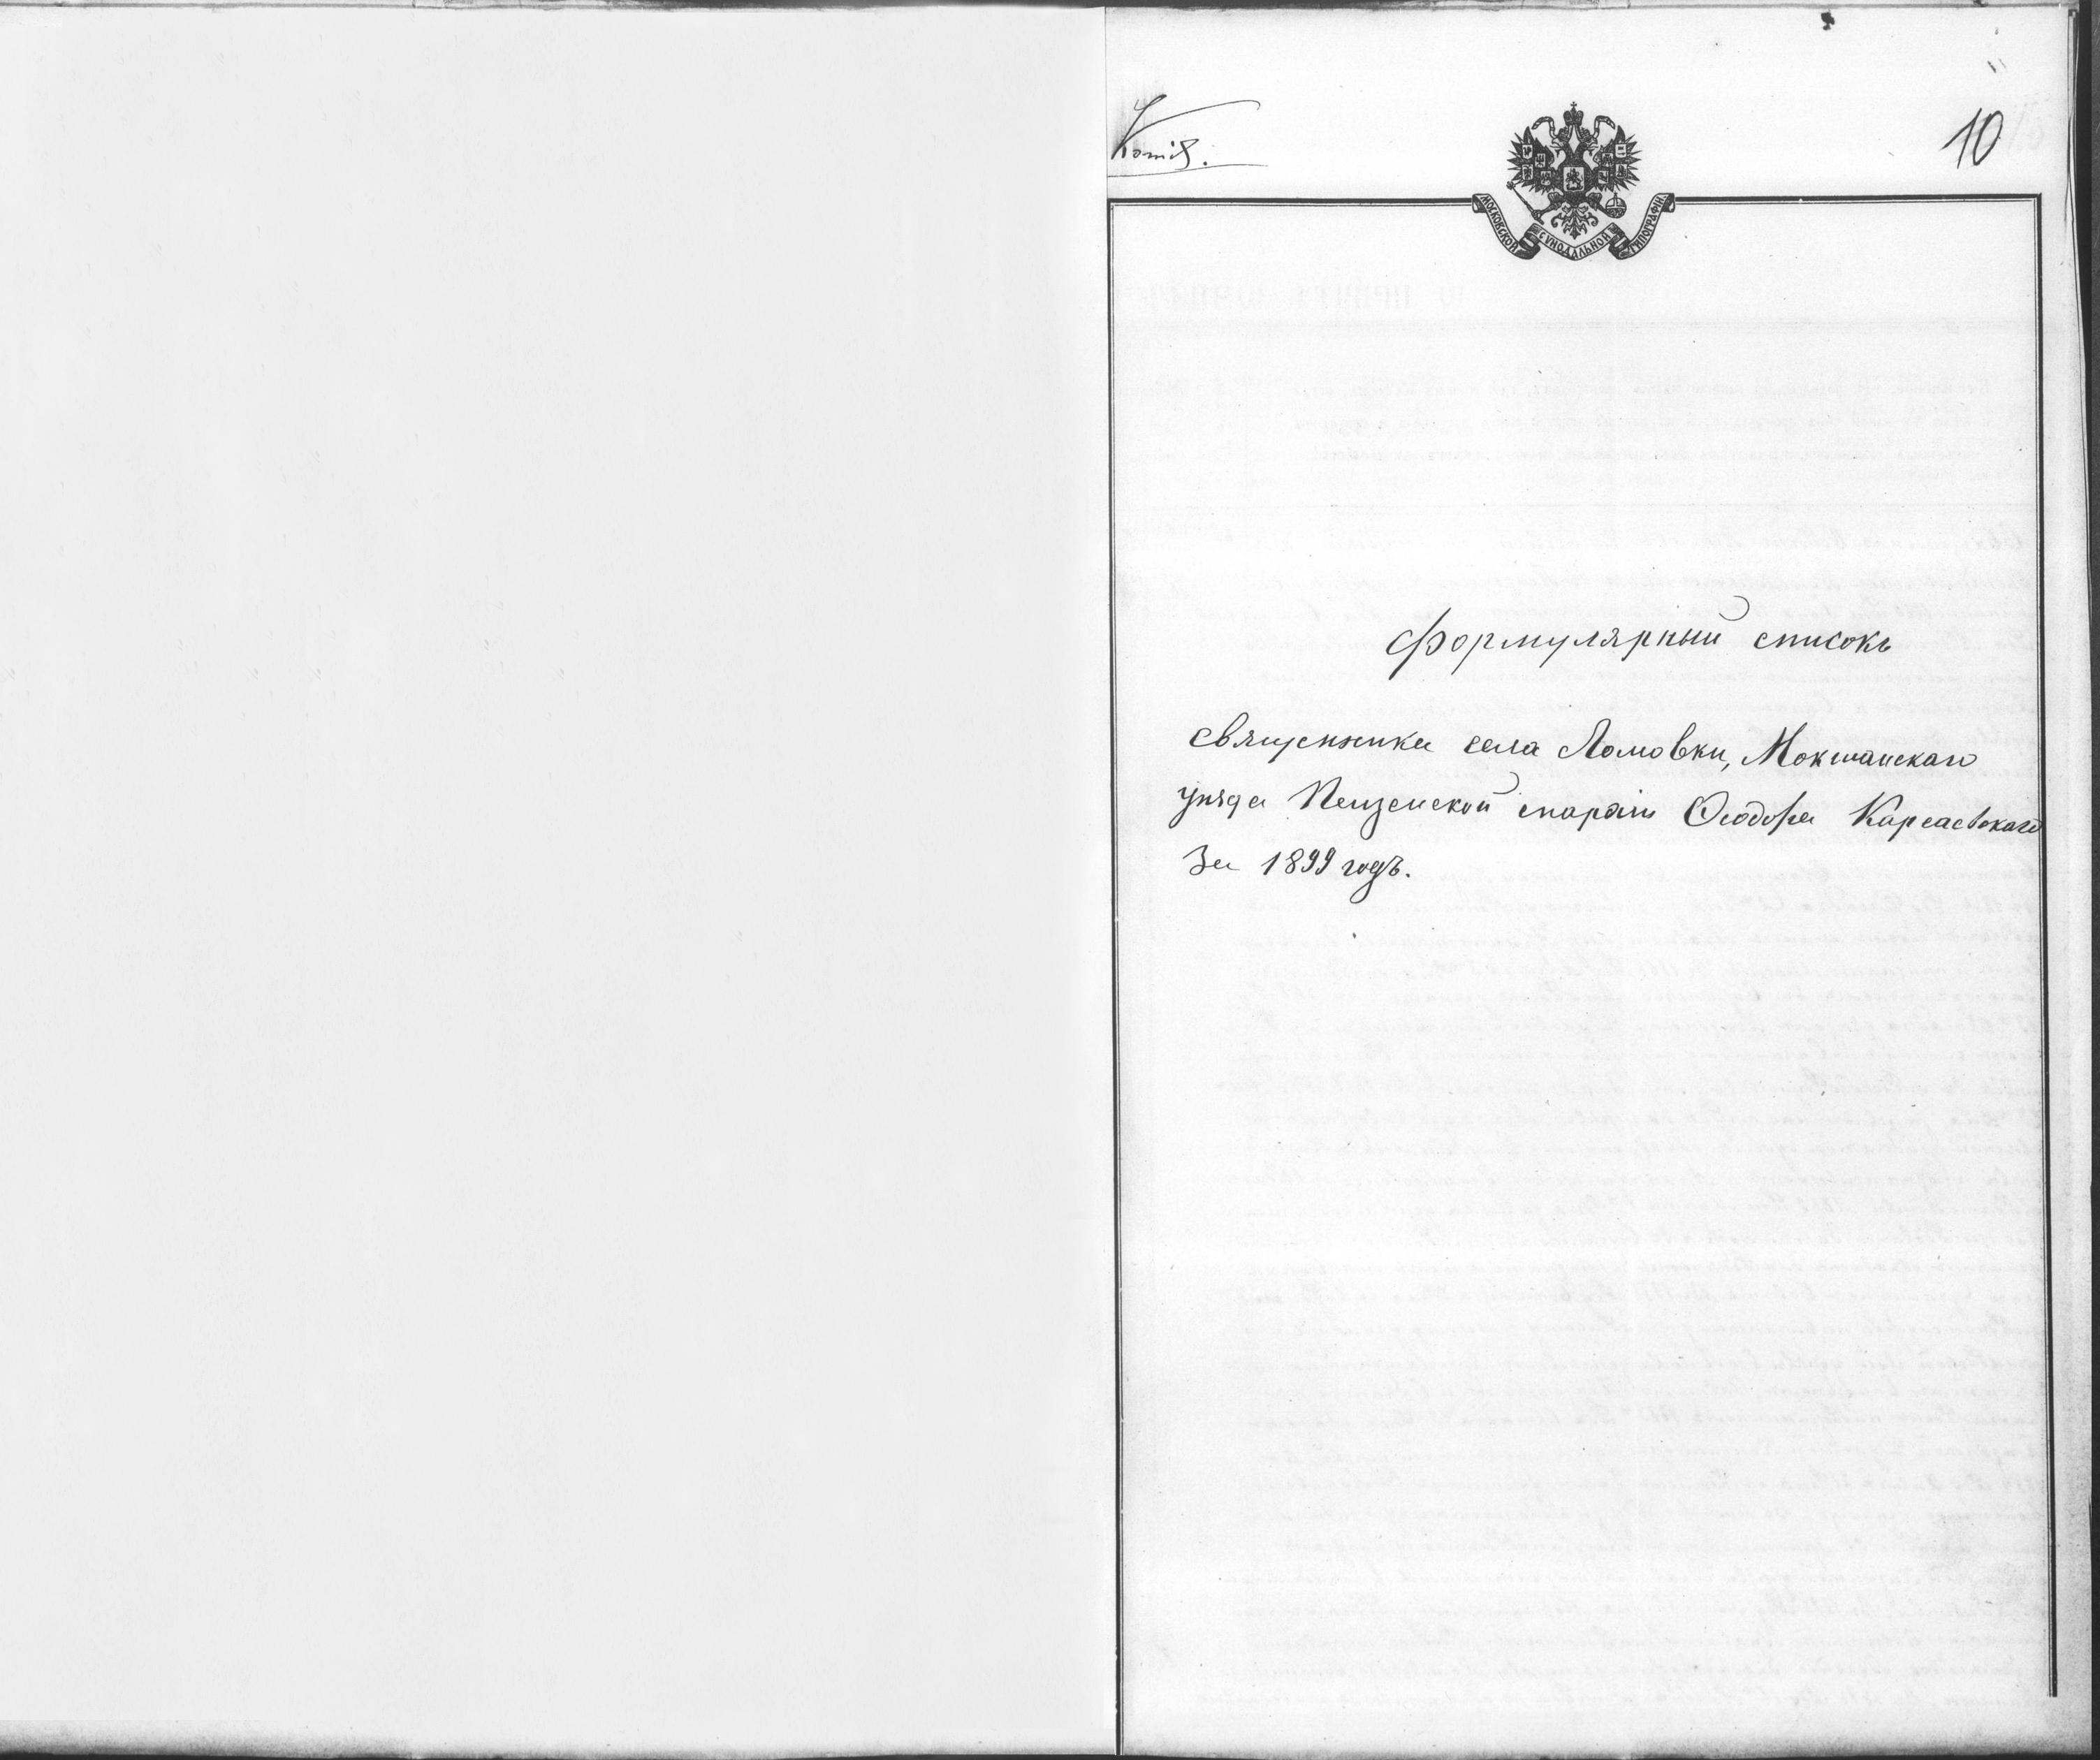 Копія.
10
МОСКОВСКОЙ СѴНОДАЛЬНОЙ ТИПОГРАФІИ.
Формулярный списокъ
священника села Ломовки, Мокшанскаго
уѣзда Пензенской епархіи Ѳеодора Карсаевскаго
За 1899 годъ.